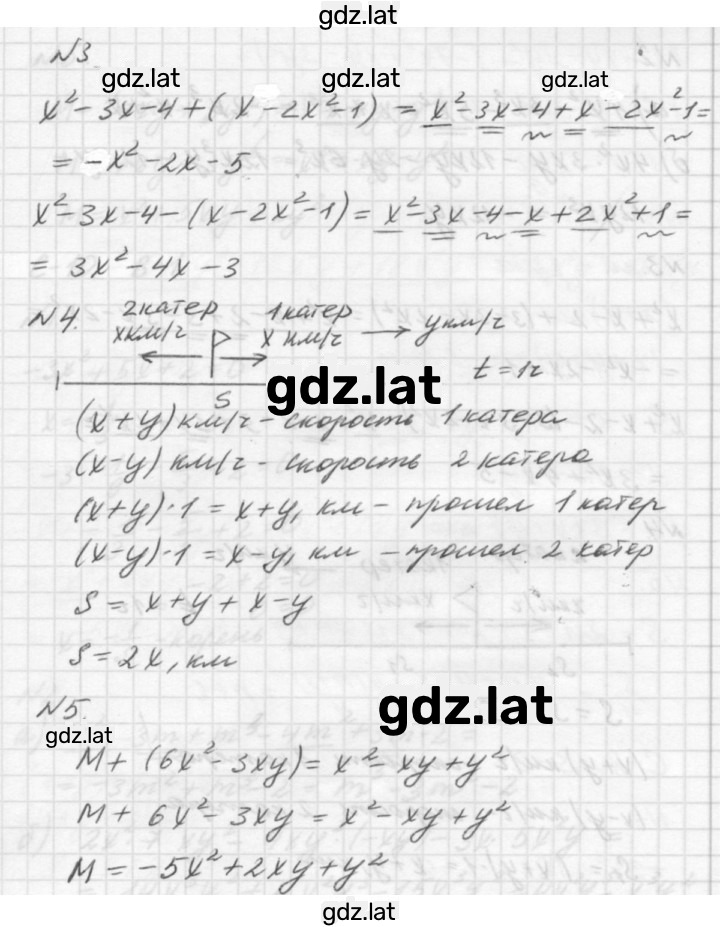 gdz.lat
№3
gdz.lat gdz.lat gdz.lat
x² - 3x - 4 + (x - 2x² - 1) = x² - 3x - 4 + x - 2x² - 1 =
= -x² - 2x - 5
x² - 3x - 4 - (x - 2x² - 1) = x² - 3x - 4 - x + 2x² + 1 =
= 3x² - 4x - 3
№4. 2 катер 1 катер
x км/ч x км/ч → y км/ч
t = 1ч
gdz.lat
S
(x + y) км/ч - скорость 1 катера
(x - y) км/ч - скорость 2 катера
(x + y)·1 = x + y, км - прошел 1 катер
(x - y)·1 = x - y, км - прошел 2 катер
S = x + y + x - y
S = 2x, км
№5.
gdz.lat
gdz.lat
M + (6x² - 3xy) = x² - xy + y²
M + 6x² - 3xy = x² - xy + y²
M = -5x² + 2xy + y²
gdz.lat